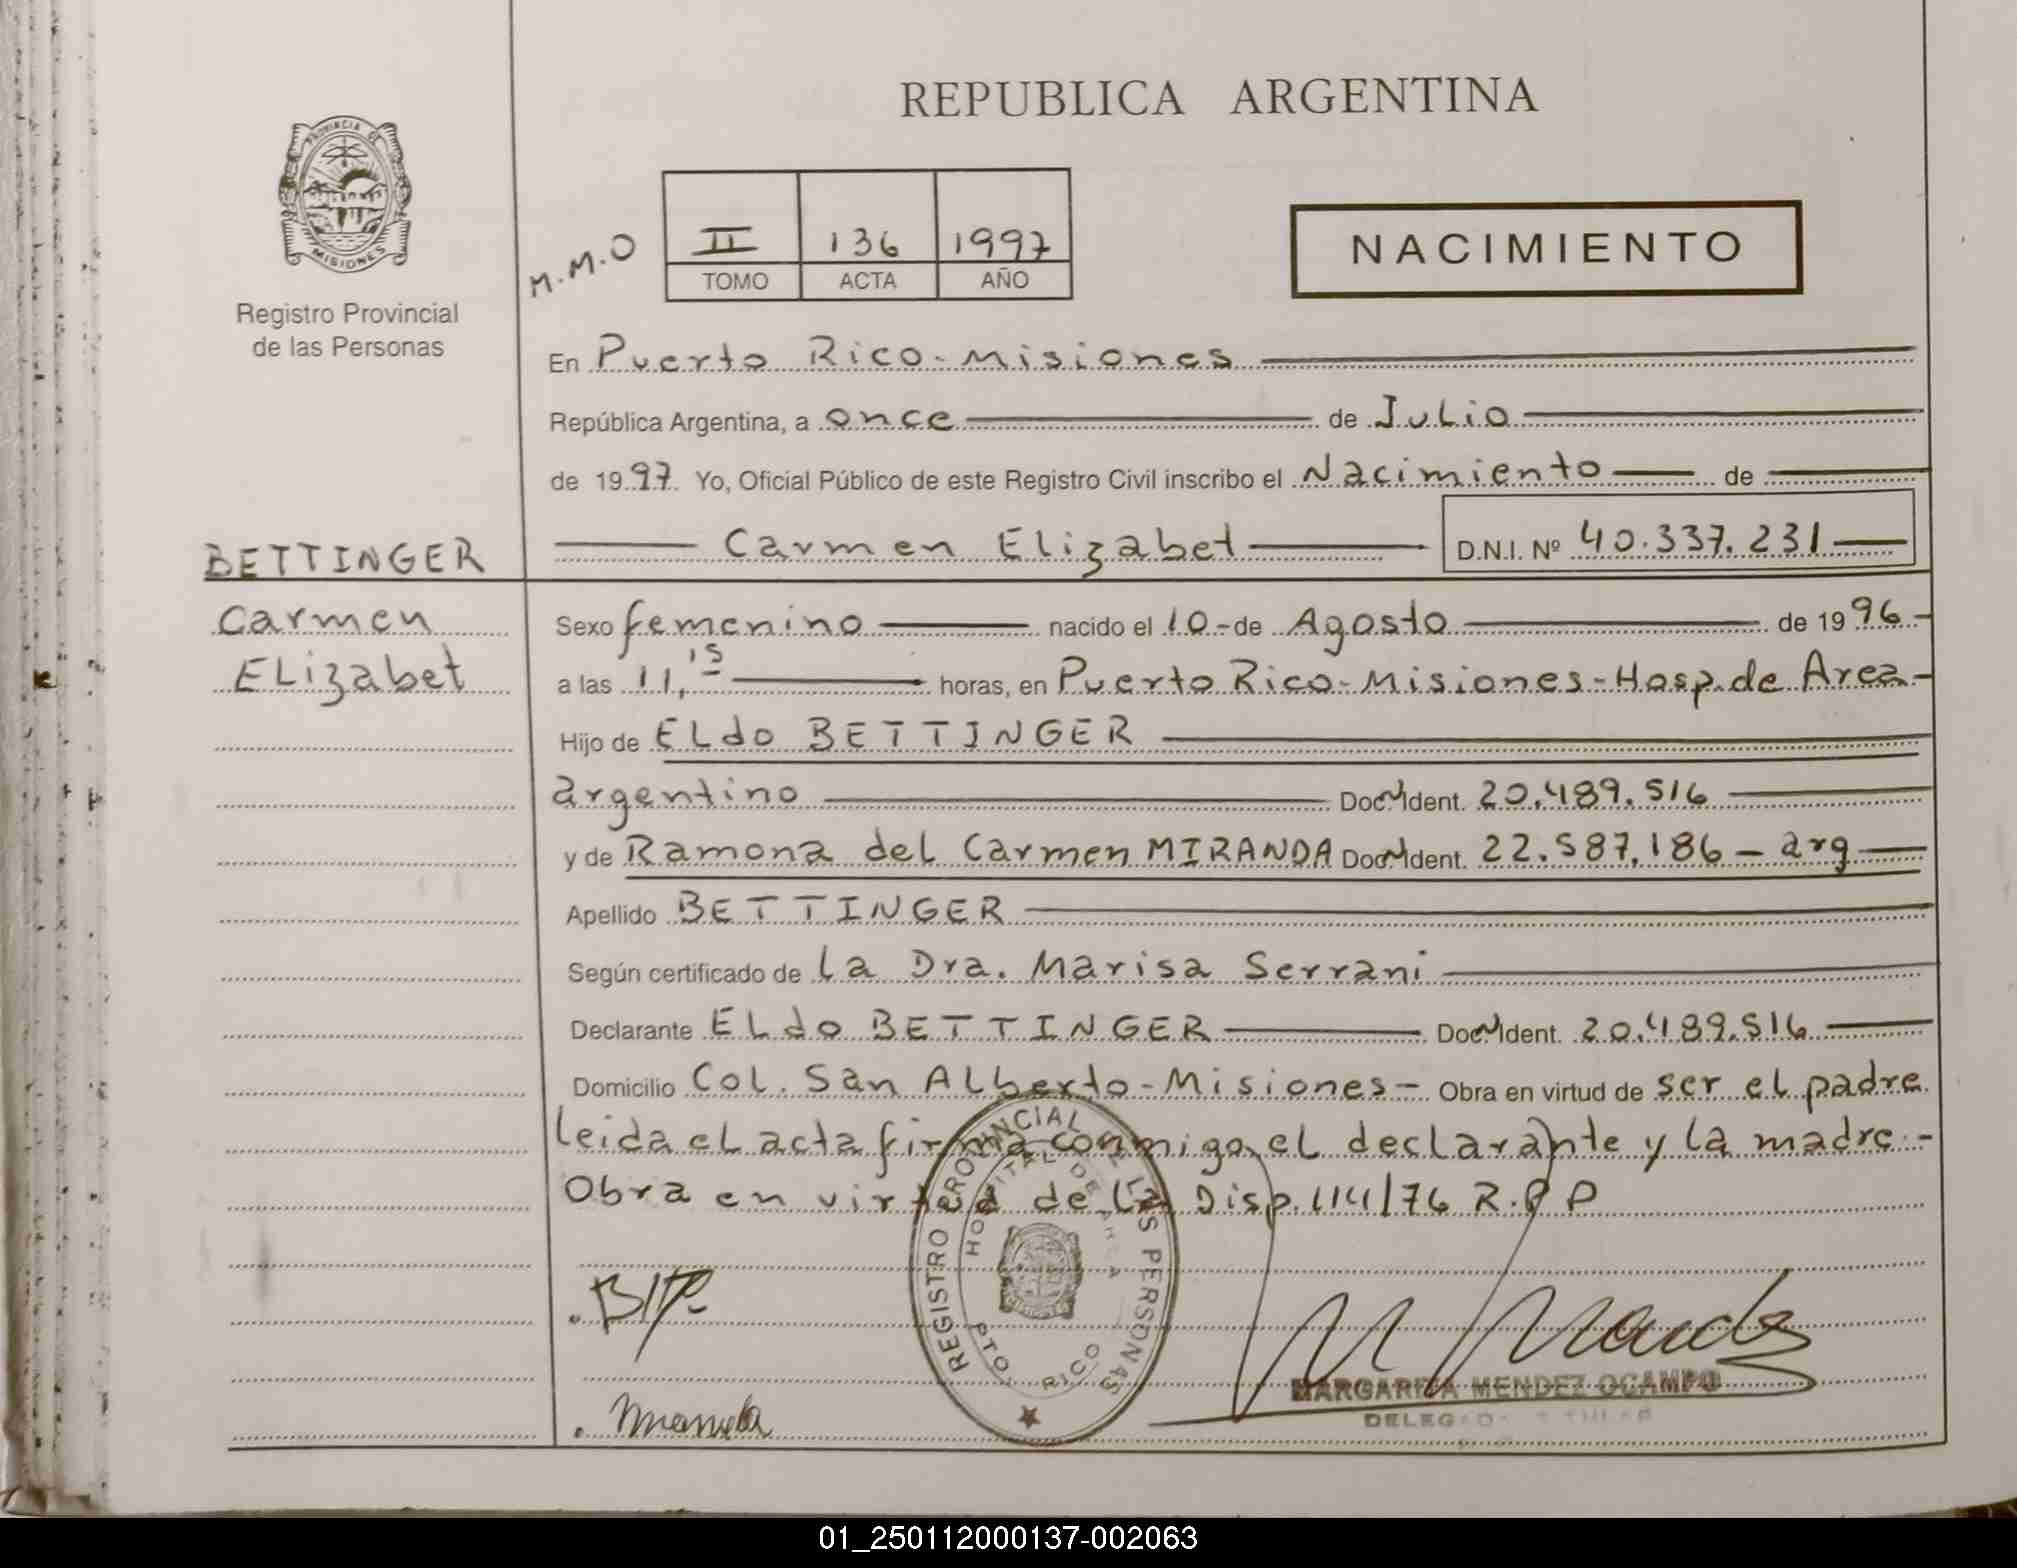 REPUBLICA ARGENTINA
PROVINCIA DE
MISIONES
Registro Provincial
de las Personas
M.M.O
II 136 1997
TOMO ACTA AÑO
NACIMIENTO
En Puerto Rico-Misiones
República Argentina, a once de Julio
de 1997. Yo, Oficial Público de este Registro Civil inscribo el Nacimiento de
BETTINGER
Carmen Elizabet D.N.I. Nº 40.337.231
Carmen
Elizabet
Sexo femenino nacido el 10-de Agosto de 1996-
a las 11,15 horas, en Puerto Rico-Misiones-Hosp.de Area-
Hijo de Eldo BETTINGER
argentino Doc Ident. 20.489.516
y de Ramona del Carmen MIRANDA Doc Ident. 22.587.186 - arg
Apellido BETTINGER
Según certificado de la Dra. Marisa Serrani
Declarante Eldo BETTINGER Doc Ident. 20.489.516
Domicilio Col. San Alberto-Misiones- Obra en virtud de ser el padre
leida el acta firma conmigo el declarante y la madre.-
Obra en virtud de la Disp.114/76 R.P P
REGISTRO PROVINCIAL DE LAS PERSONAS
HOSPITAL DE AREA
PTO. RICO
MARGARITA MENDEZ OCAMPO
01_250112000137-002063